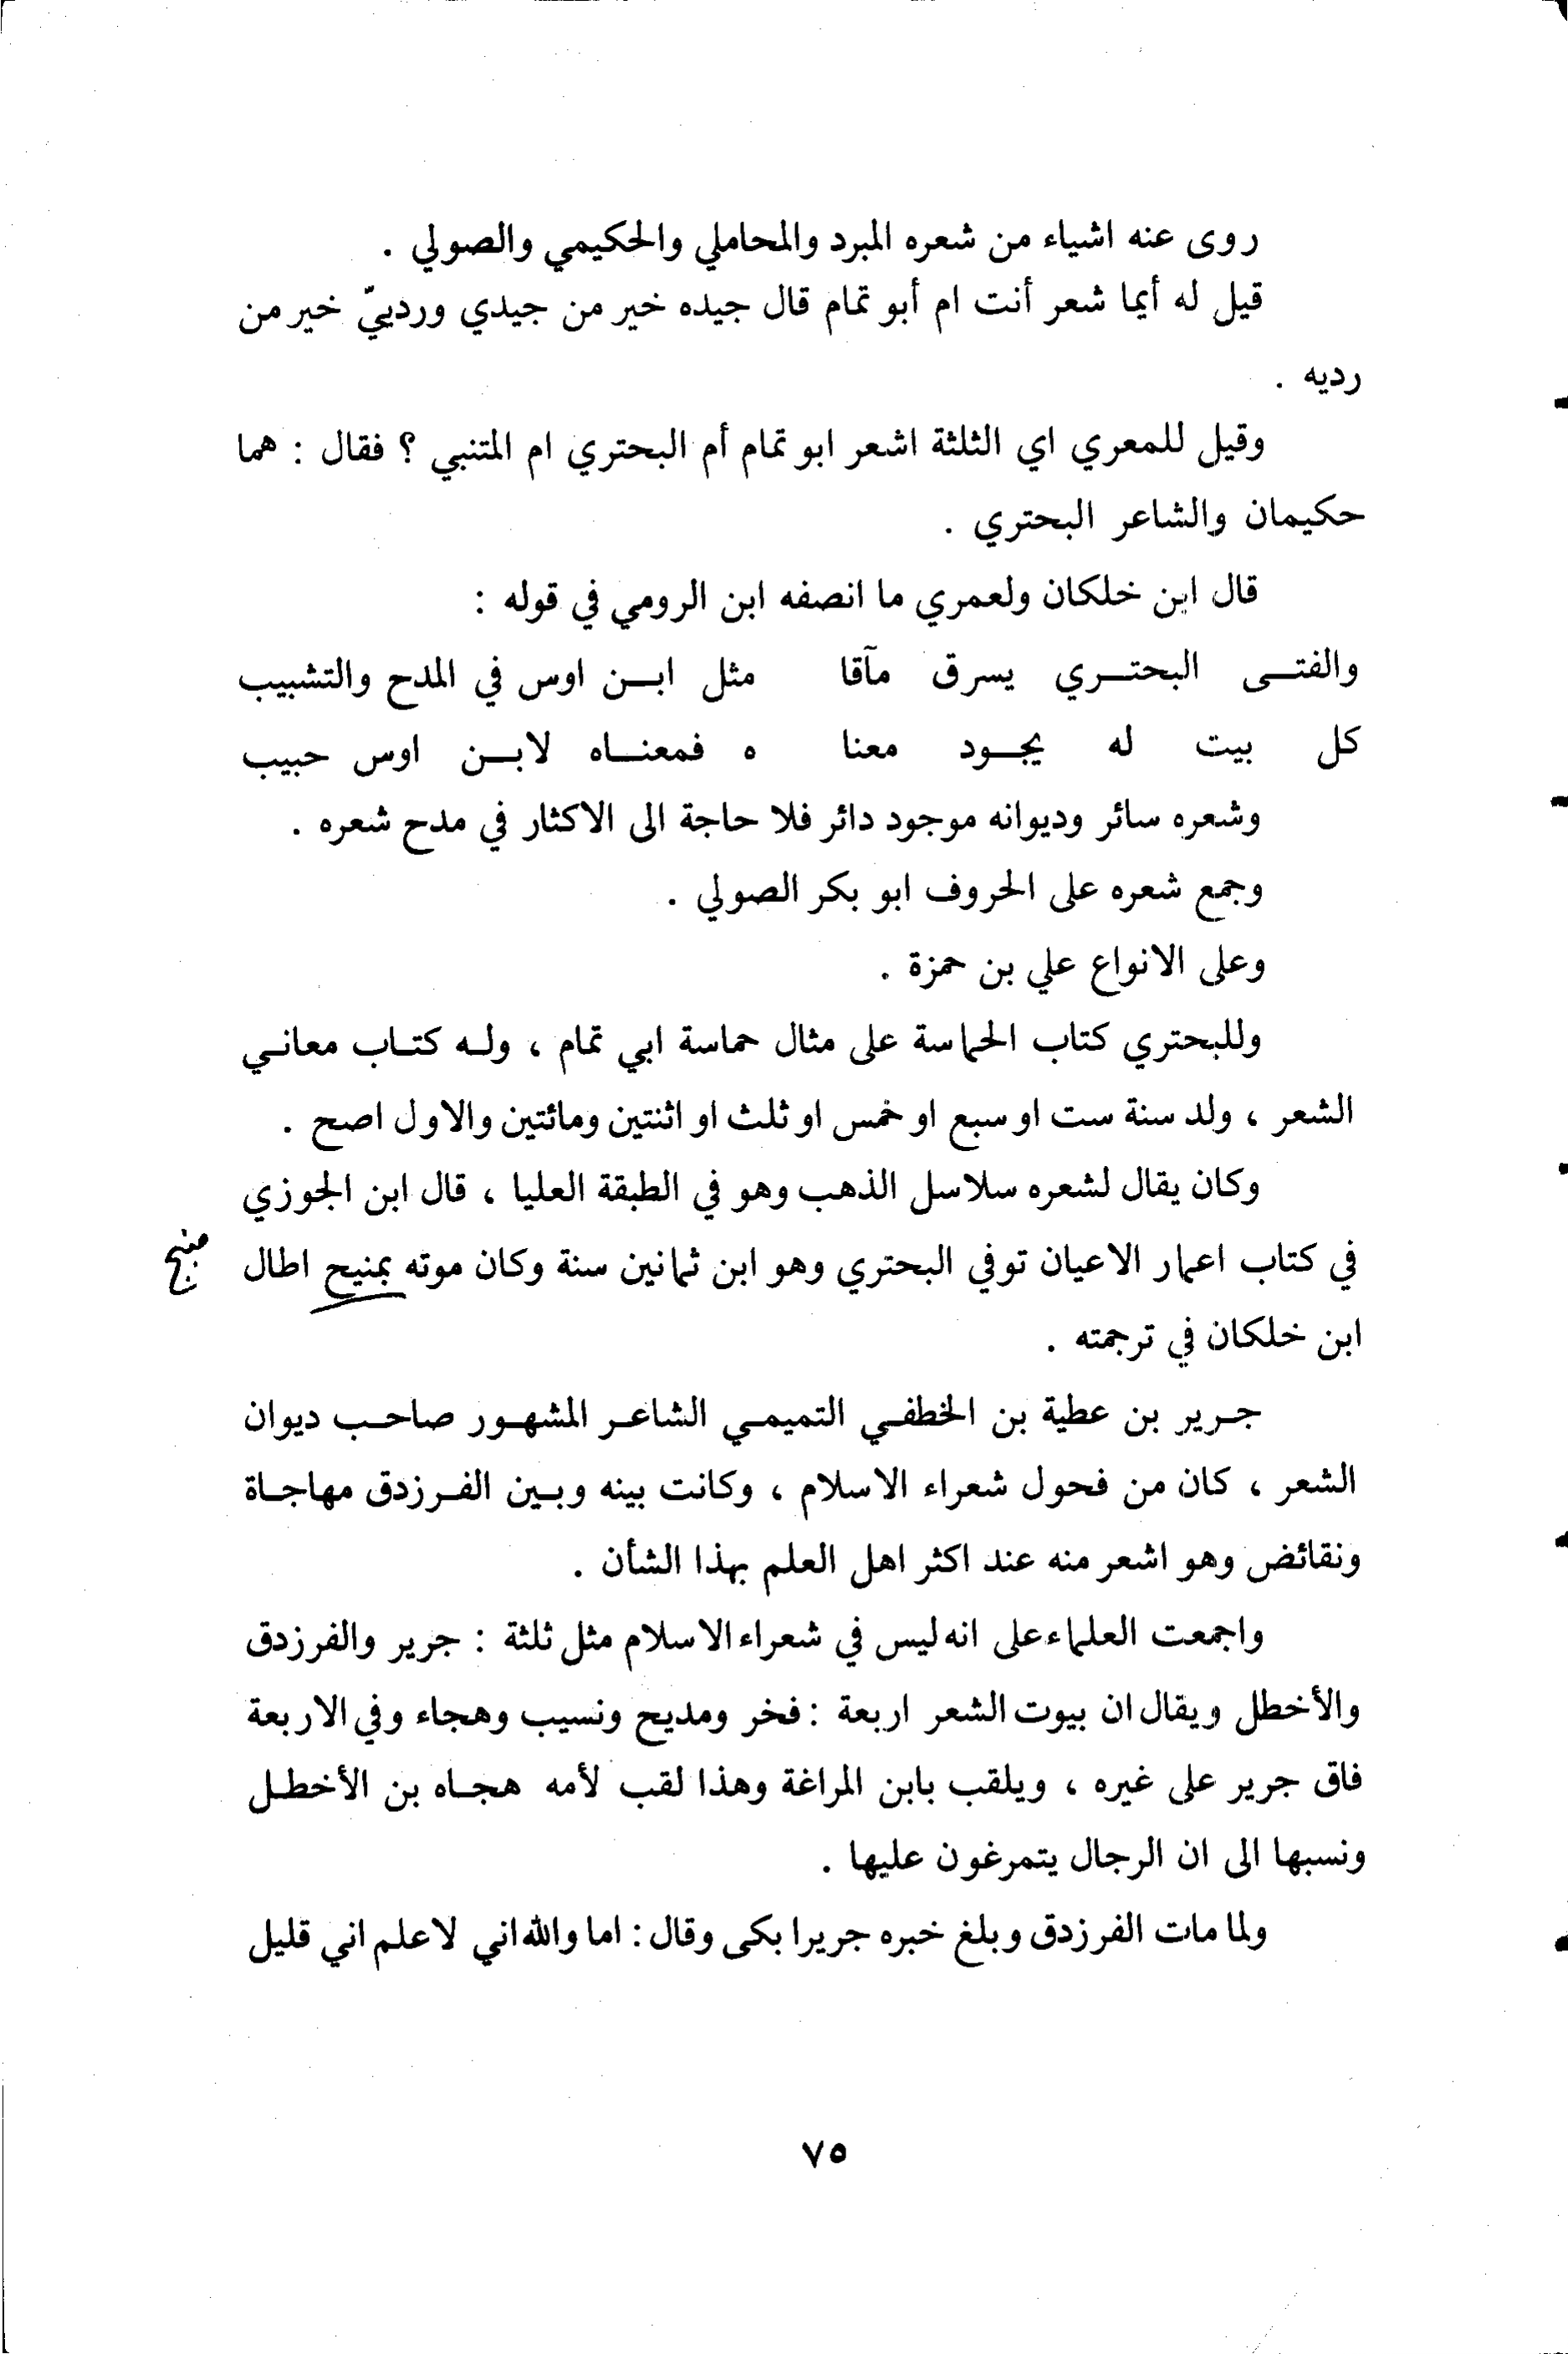 روى عنه اشياء من شعره المبرد والمحاملي والحكيمي والصولي .
قيل له أيما شعر أنت ام أبو تمام قال جيده خير من جيدي وردييّ خير من
رديه .
وقيل للمعري اي الثلثة اشعر ابو تمام أم البحتري ام المتنبي ؟ فقال : هما
حكيمان والشاعر البحتري .
قال ابن خلكان ولعمري ما انصفه ابن الرومي في قوله :
والفتـى البحتـري يسرق مآقا مثل ابـن اوس في المدح والتشبيب
كل بيت له يجـود معنا ه فمعنـاه لابـن اوس حبيب
وشعره سائر وديوانه موجود دائر فلا حاجة الى الاكثار في مدح شعره .
وجمع شعره على الحروف ابو بكر الصولي .
وعلى الانواع علي بن حمزة .
وللبحتري كتاب الحماسة على مثال حماسة ابي تمام ، ولـه كتـاب معانـي
الشعر ، ولد سنة ست او سبع او خمس او ثلث او اثنتين ومائتين والاول اصح .
وكان يقال لشعره سلاسل الذهب وهو في الطبقة العليا ، قال ابن الجوزي
في كتاب اعمار الاعيان توفي البحتري وهو ابن ثمانين سنة وكان موته بمنيح اطال منبج
ابن خلكان في ترجمته .
جـرير بن عطية بن الخطفـي التميمـي الشاعـر المشهـور صاحـب ديوان
الشعر ، كان من فحول شعراء الاسلام ، وكانت بينه وبـين الفـرزدق مهاجـاة
ونقائض وهو اشعر منه عند اكثر اهل العلم بهذا الشأن .
واجمعت العلماء على انه ليس في شعراء الاسلام مثل ثلثة : جرير والفرزدق
والأخطل ويقال ان بيوت الشعر اربعة : فخر ومديح ونسيب وهجاء وفي الاربعة
فاق جرير على غيره ، ويلقب بابن المراغة وهذا لقب لأمه هجـاه بن الأخطـل
ونسبها الى ان الرجال يتمرغون عليها .
ولما مات الفرزدق وبلغ خبره جريرا بكى وقال : اما والله اني لاعلم اني قليل
٧٥